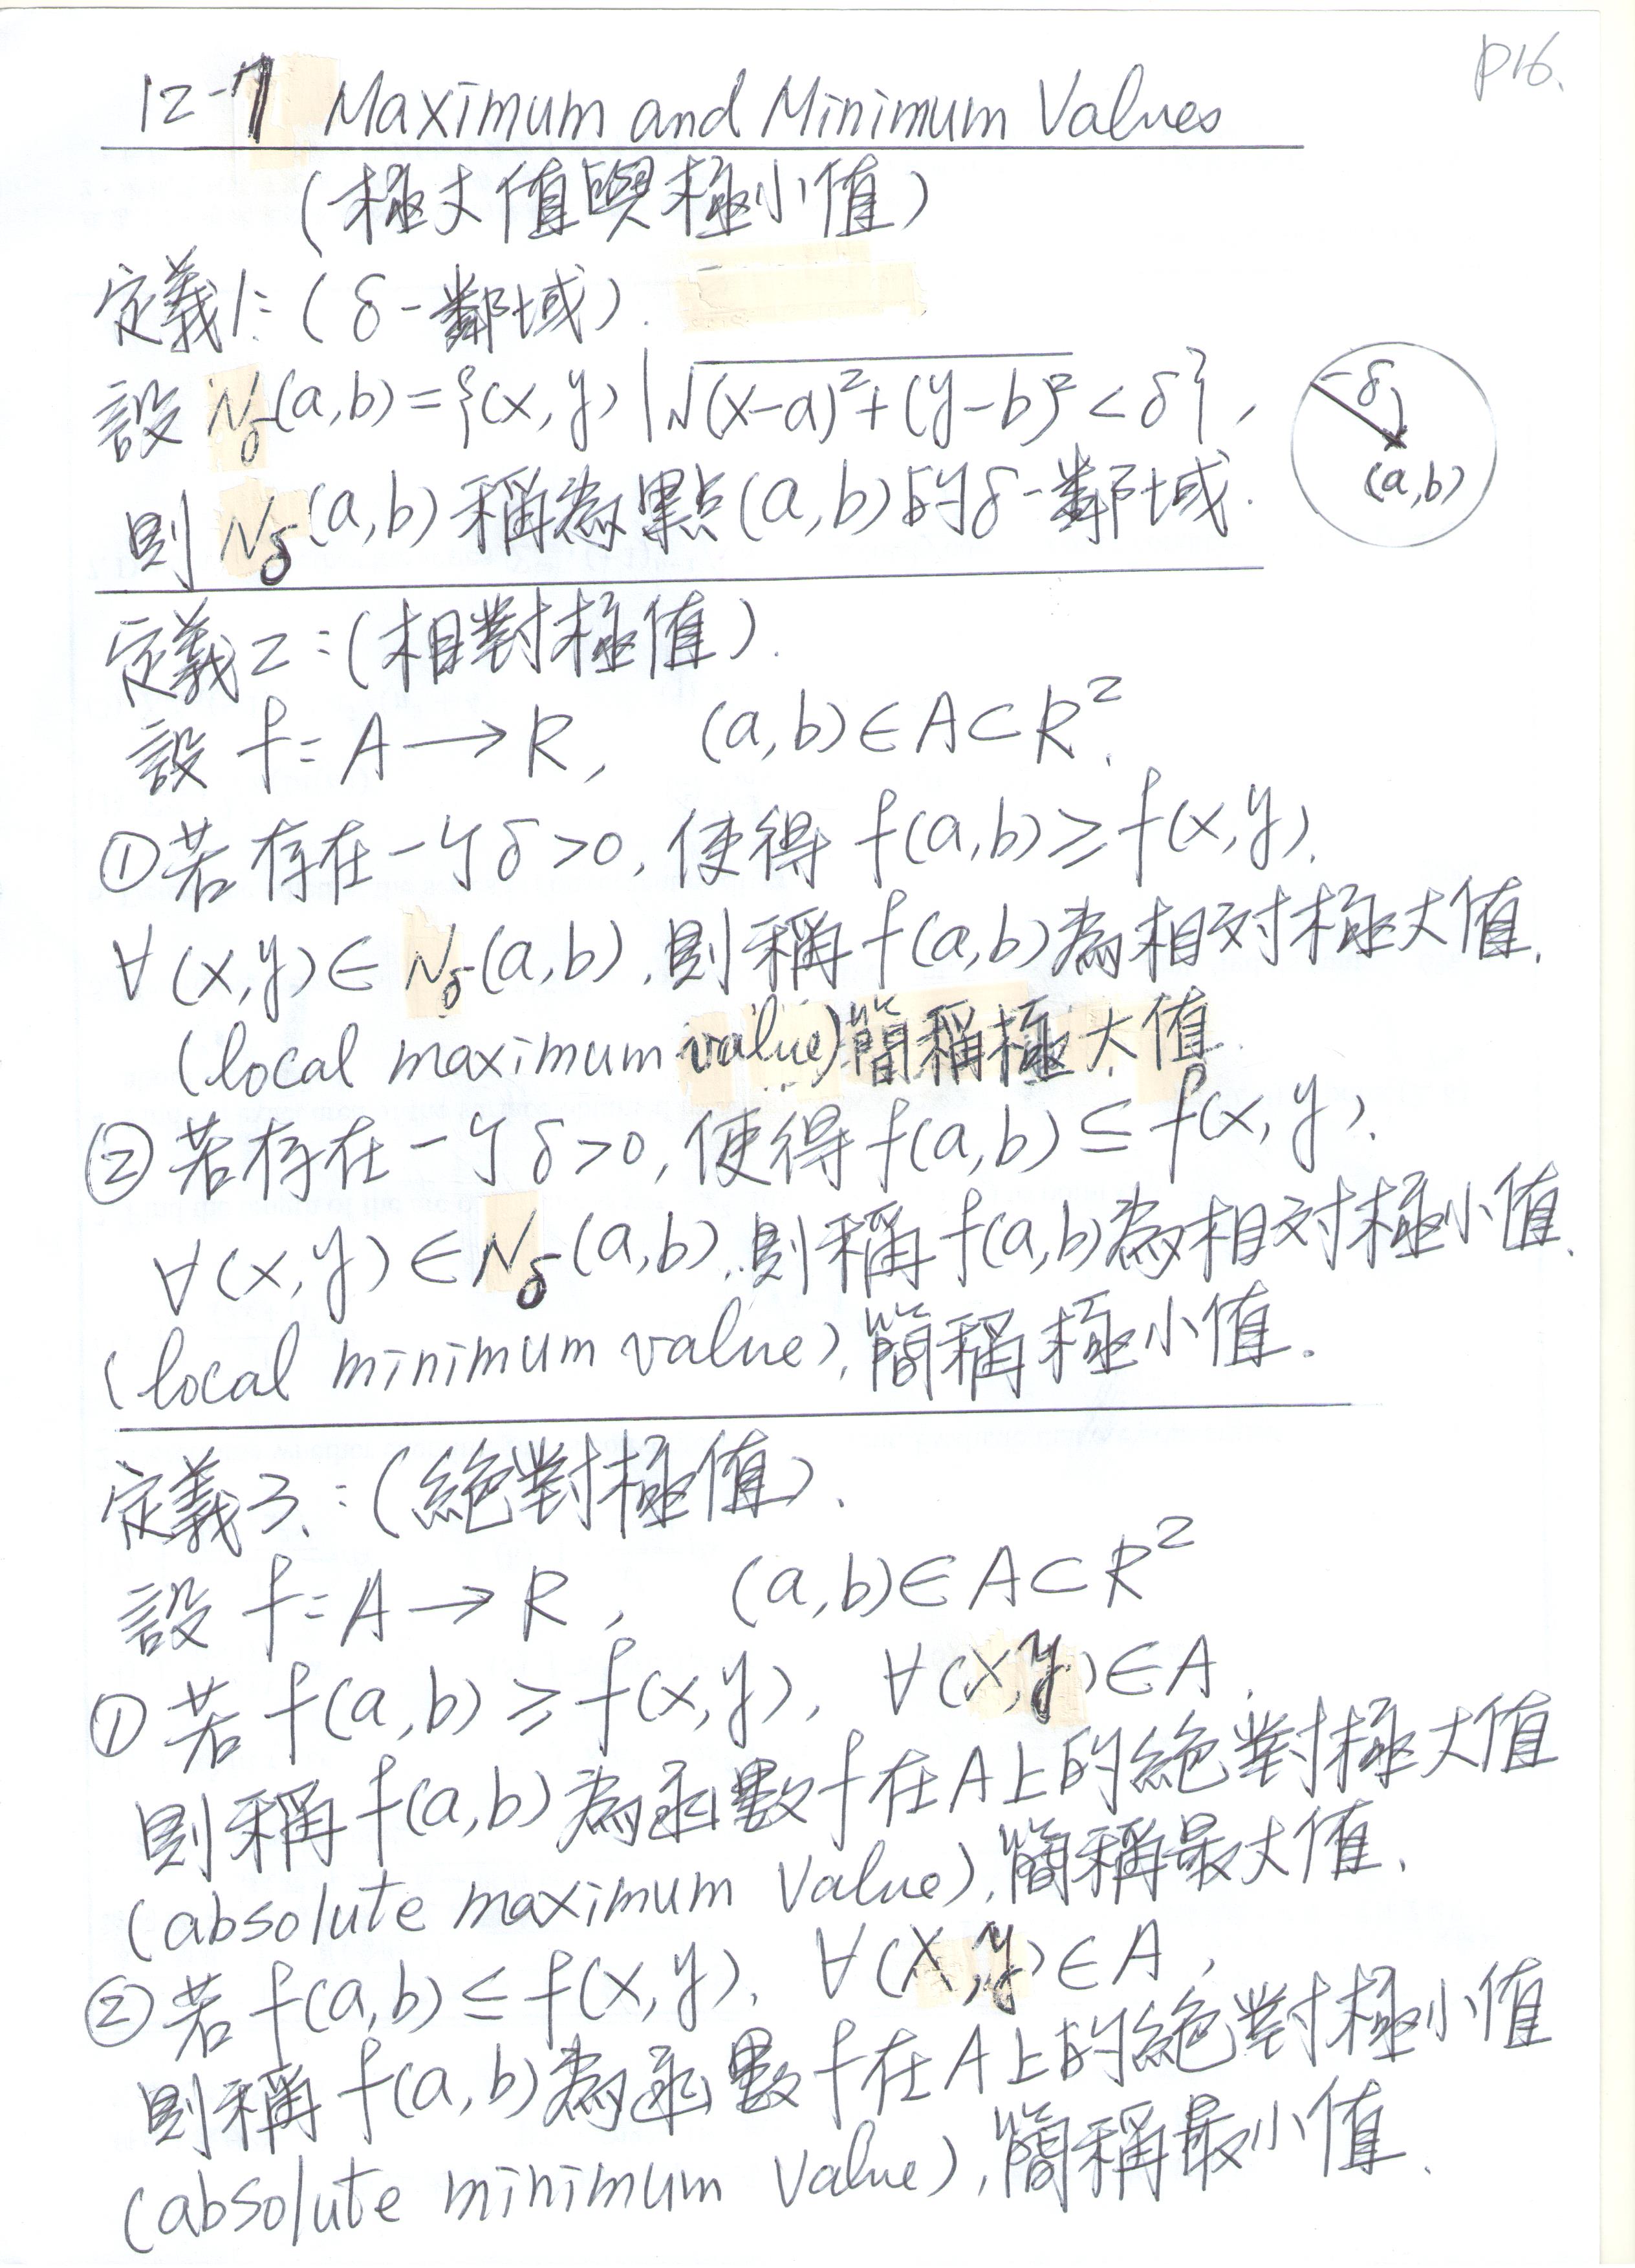 P16.
12-7 Maximum and Minimum Values
(極大值與極小值)
定義1:(δ-鄰域).
設 Nδ(a,b)={(x,y)|√(x-a)²+(y-b)² < δ},
-δ
(a,b)
則 Nδ(a,b)稱為點(a,b)的δ-鄰域.
定義2:(相對極值).
設 f: A → R, (a,b)∈A⊂R².
①若存在一個δ>0,使得 f(a,b)≥f(x,y),
∀(x,y)∈Nδ(a,b),則稱f(a,b)為相对極大值.
(local maximum value)簡稱極大值.
②若存在一個δ>0,使得f(a,b)≤f(x,y),
∀(x,y)∈Nδ(a,b),則稱f(a,b)為相对極小值.
(local minimum value),簡稱極小值.
定義3.:(絕對極值).
設 f: A → R, (a,b)∈A⊂R²
①若 f(a,b)≥f(x,y), ∀(x,y)∈A,
則稱f(a,b)為函數f在A上的絕對極大值
(absolute maximum value),簡稱最大值.
②若f(a,b)≤f(x,y), ∀(x,y)∈A,
則稱f(a,b)為函數f在A上的絕對極小值
(absolute minimum value),簡稱最小值.